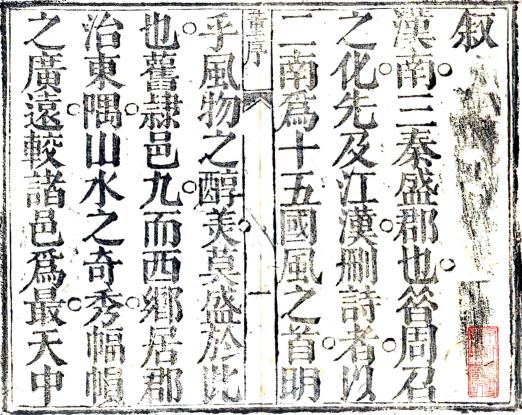 叙
漢南三秦盛郡也昔周召
之化先及江漢刪詩者以
二南爲十五國風之首明
董序
一
乎風物之醇美莫盛於此
也舊隷邑九而西鄉居郡
治東隅山水之奇秀幅幀
之廣遠較諸邑爲最天中